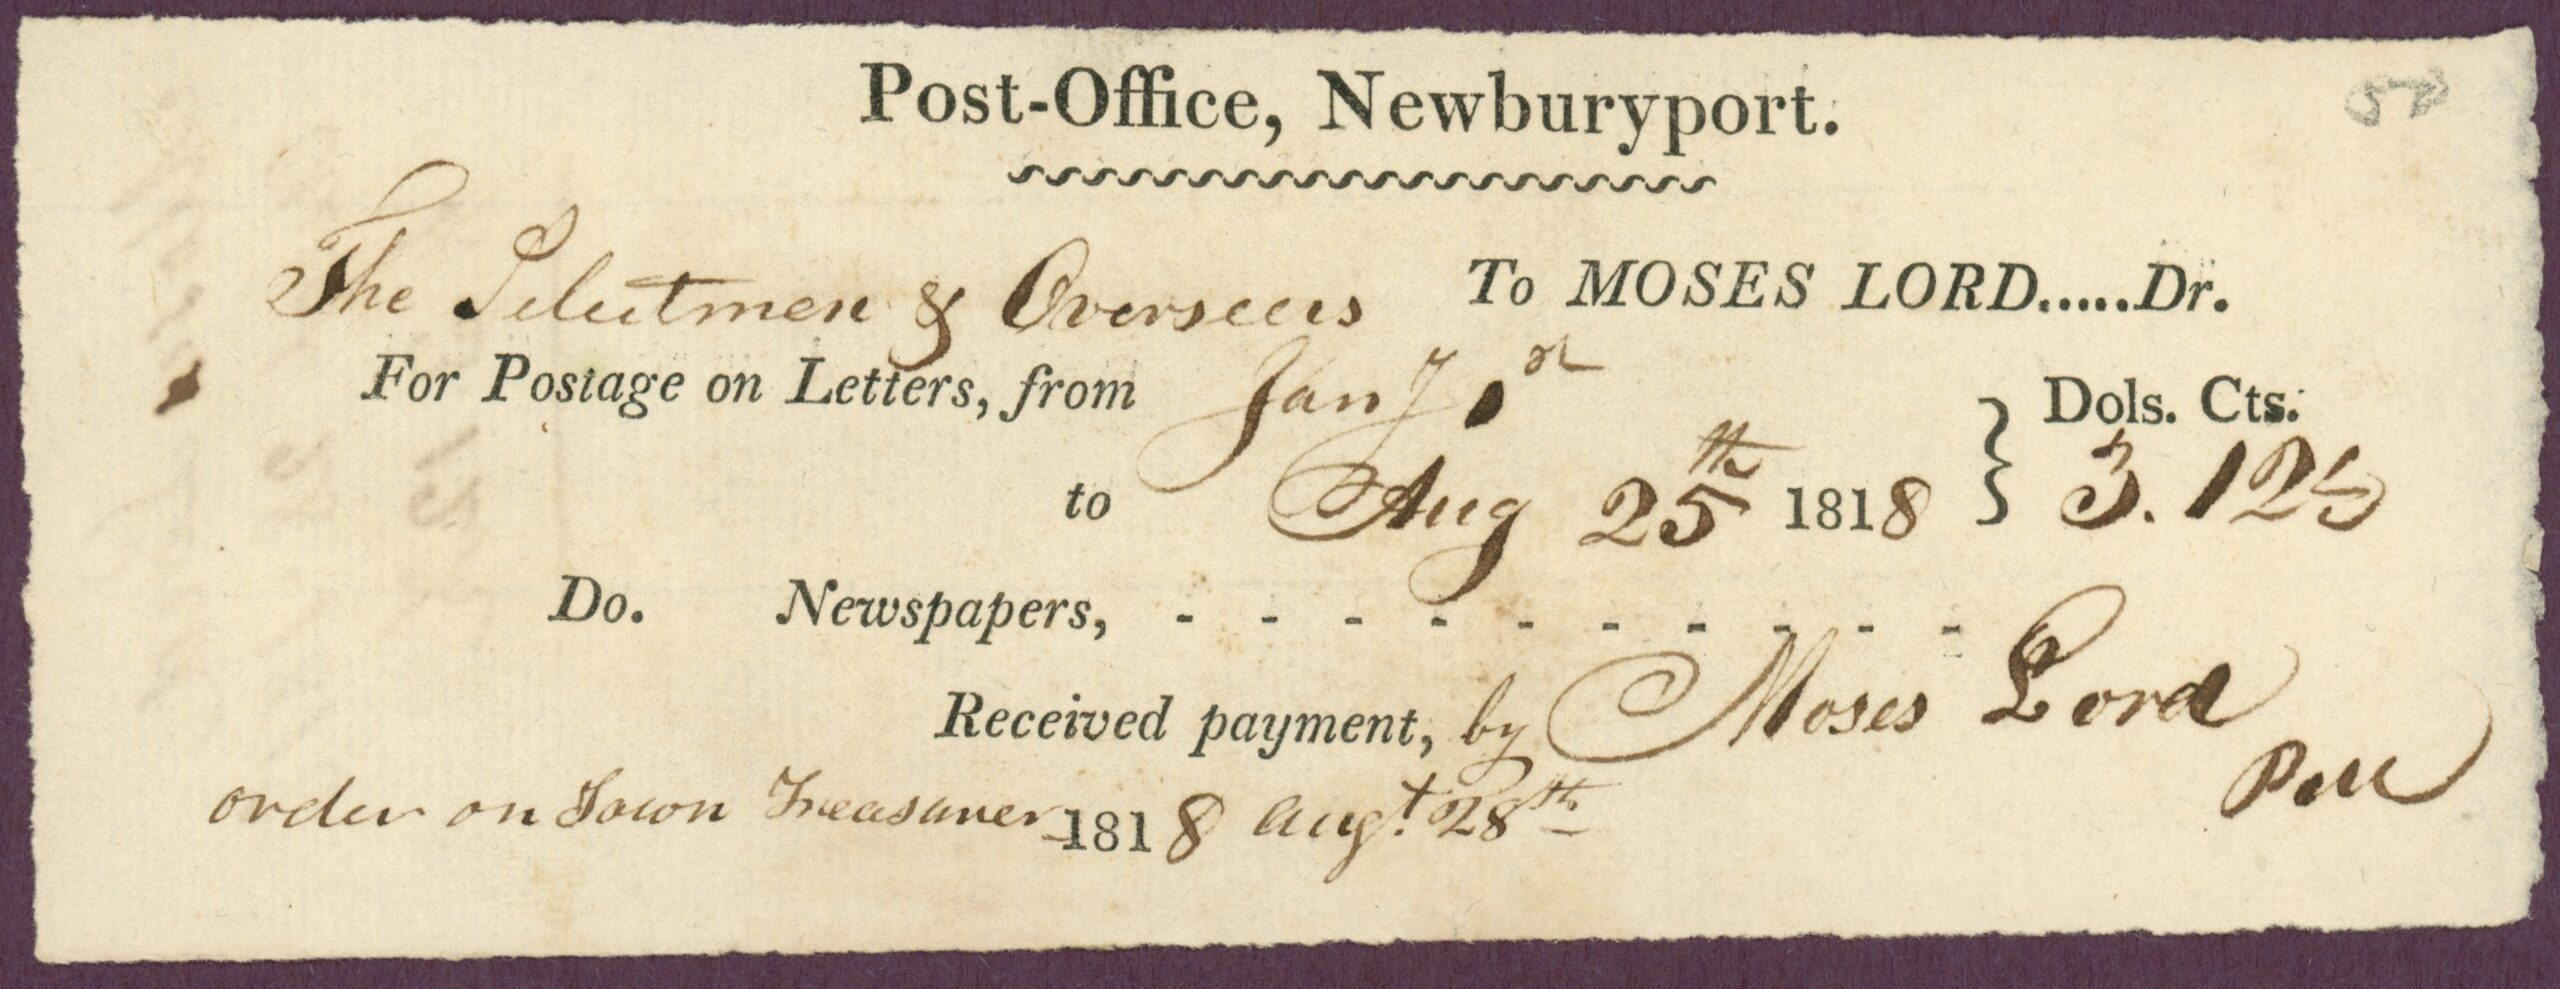 Post-Office, Newburyport.
The Selectmen & Overseers To MOSES LORD.....Dr.
For Postage on Letters, from Jany 1st
Dols. Cts.
to Aug 25th 1818 } 3.12½
Do. Newspapers, - - - - - - - - - -
Received payment, by Moses Lord
order on Town Treasurer 1818 Augt. 28th